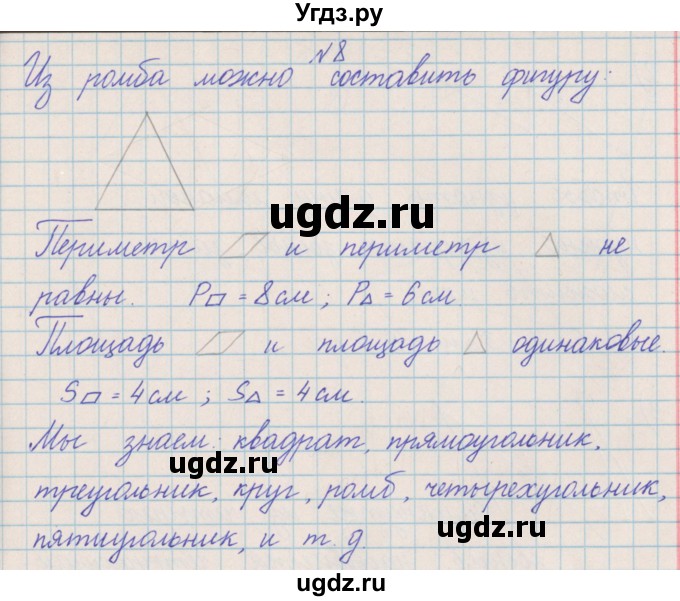 Угдз.ру
№8
Из ромба можно составить фигуру:
ugdz.ru
Периметр и периметр не
равны. P = 8 см ; P = 6 см
ugdz.ru
Площадь и площадь одинаковые.
S = 4 см ; S = 4 см.
Мы знаем: квадрат, прямоугольник,
ugdz.ru
треугольник, круг, ромб, четырехугольник,
ugdz.ru
пятиугольник, и т. д.
ugdz.ru